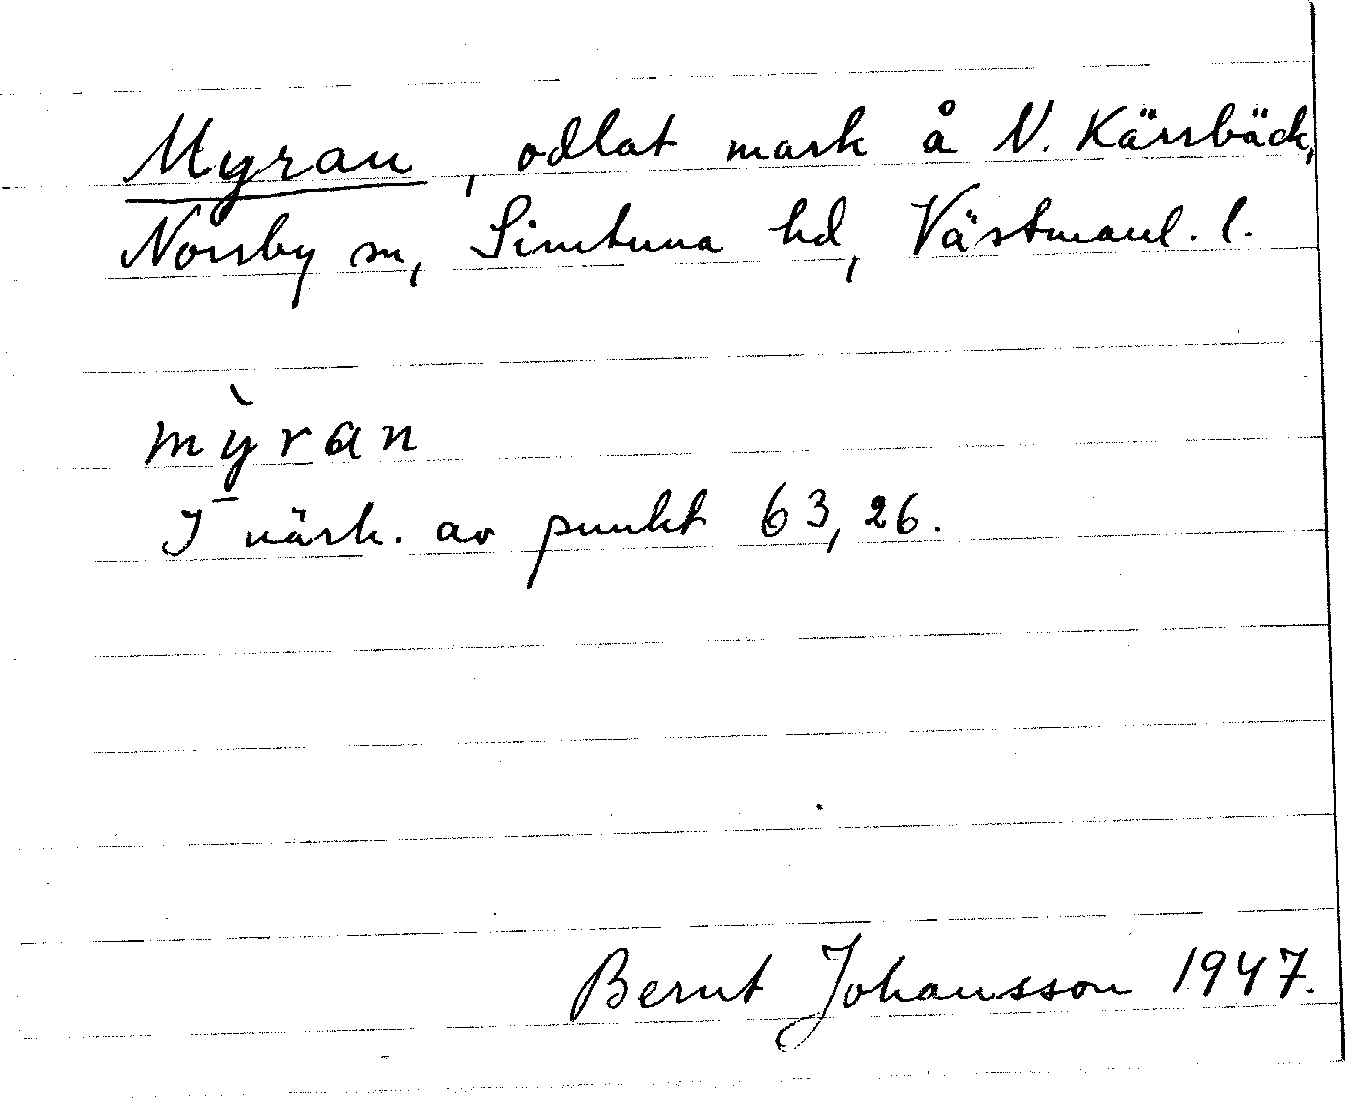 Myran, odlat mark å N. Kärrbäck,
Norrby sn, Simtuna hd, Västmanl. l.
mỳ̱ran
I närh. av punkt 63,26.
Bernt Johansson 1947.